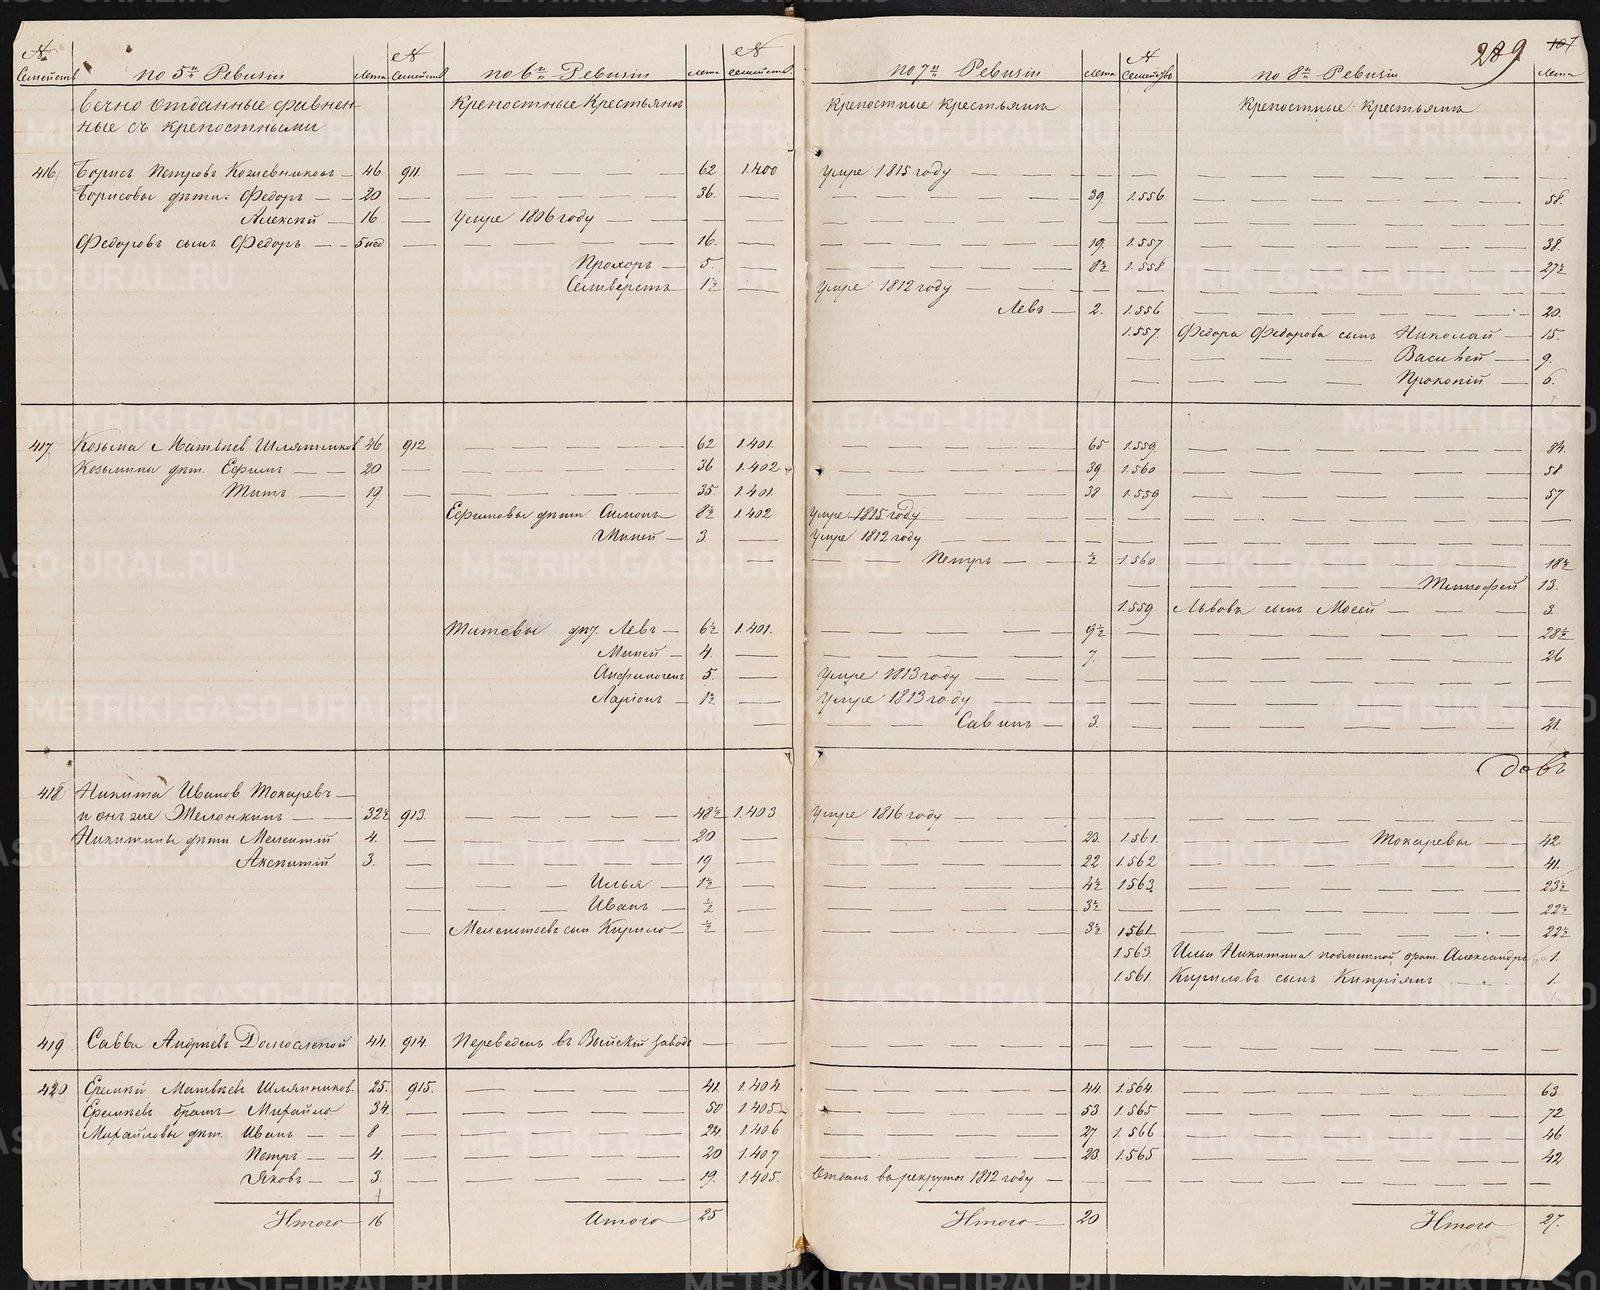 289 107
№ Семейств по 5й Ревизiи лета № Семейств по 6й Ревизiи лета № семейств. по 7й Ревизiи лета № Семейств по 8й Ревизiи лета
вечно отданные сравнен Крепостные Крестьянъ Крепостные Крестьянъ Крепостные Крестьянъ
ные съ крепостными
416 Борисъ Петровъ 46 911. 62 1.400 умре 1815 году
Борисовы дѣти: Федоръ 20 36. 39. 1.556 58.
Алексѣй 16 умре 1806 году
Федоровъ сынъ Федоръ 5 нед 16. 19. 1.557 38.
Прохоръ 5. 8½ 1.558 27½
Селиверстъ 1½ умре 1812 году
Левъ 2. 1.556 20.
1.557. Федора Федорова сынъ Николай 15.
Василей 9.
Прокопiй 6.
417. Козьма Матвѣев Шляпников 46 912 62 1.401. 65 1.559. 84.
Козьмины дѣт. Ефимъ 20 36 1.402 39 1.560 58
Титъ 19. 35. 1.401. 38 1.559 57
Ефимовы дѣти Симонъ 8½ 1.402 умре 1815 году
Миней 3. умре 1812 году
Петръ ½ 1.560 18½
Тимофей 13.
1.559 Львовъ сынъ Мосей 3.
Титовы дѣт. Левъ 6½ 1.401. 9½ 28½
Миней 4. 7. 26
Анфиногенъ 5. умре 1813 году
Ларiонъ 1½ умре 1813 году
Савинъ 3. 21.
довъ
418 Никита Иванов Токаревъ
и онъ же Желонкинъ 32½ 913. 48½ 1.403 умре 1816 году
Никитины дѣти Мелентiй 4. 20 23. 1.561. Токаревы 42
3. 19 22 1.562 41.
Илья 1½ 4½ 1563. 23½
Иванъ ½ 3½ 22½
Мелентьевъ сын Кирило ½ 3½ 1561 22½
1.563. Ильи Никитина брат. Александръ 1.
1.561. Кириловъ сынъ Кипрiянъ 1.
419 Савва Андреевъ 44. 914. Переведенъ въ Выйскiй заводъ
420 Еремѣй Матвѣевъ Шляпников. 25. 915. 41. 1.404. 44. 1.564. 63
Еремѣевъ братъ Михайло 34. 50 1.405. 53 1.565 72
Михайловы дѣт. Иванъ 8 24. 1.406 27 1.566 46
Петръ 4. 20 1.407 23. 1.565 42
Яковъ 3. 19. 1.405. Отданъ въ рекруты 1812 году
Итого 16 Итого 25 Итого 20 Итого 27.
METRIKI.GASO-URAL.RU